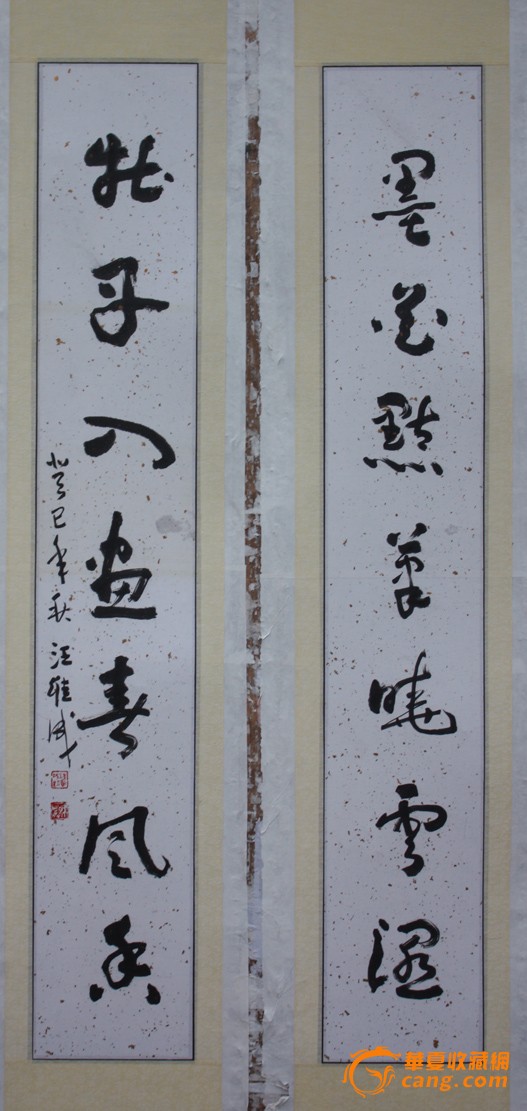 墨花點筆曉雲濕
牡丹入畫春風香
癸巳年秋汪
華夏收藏網
cang.com